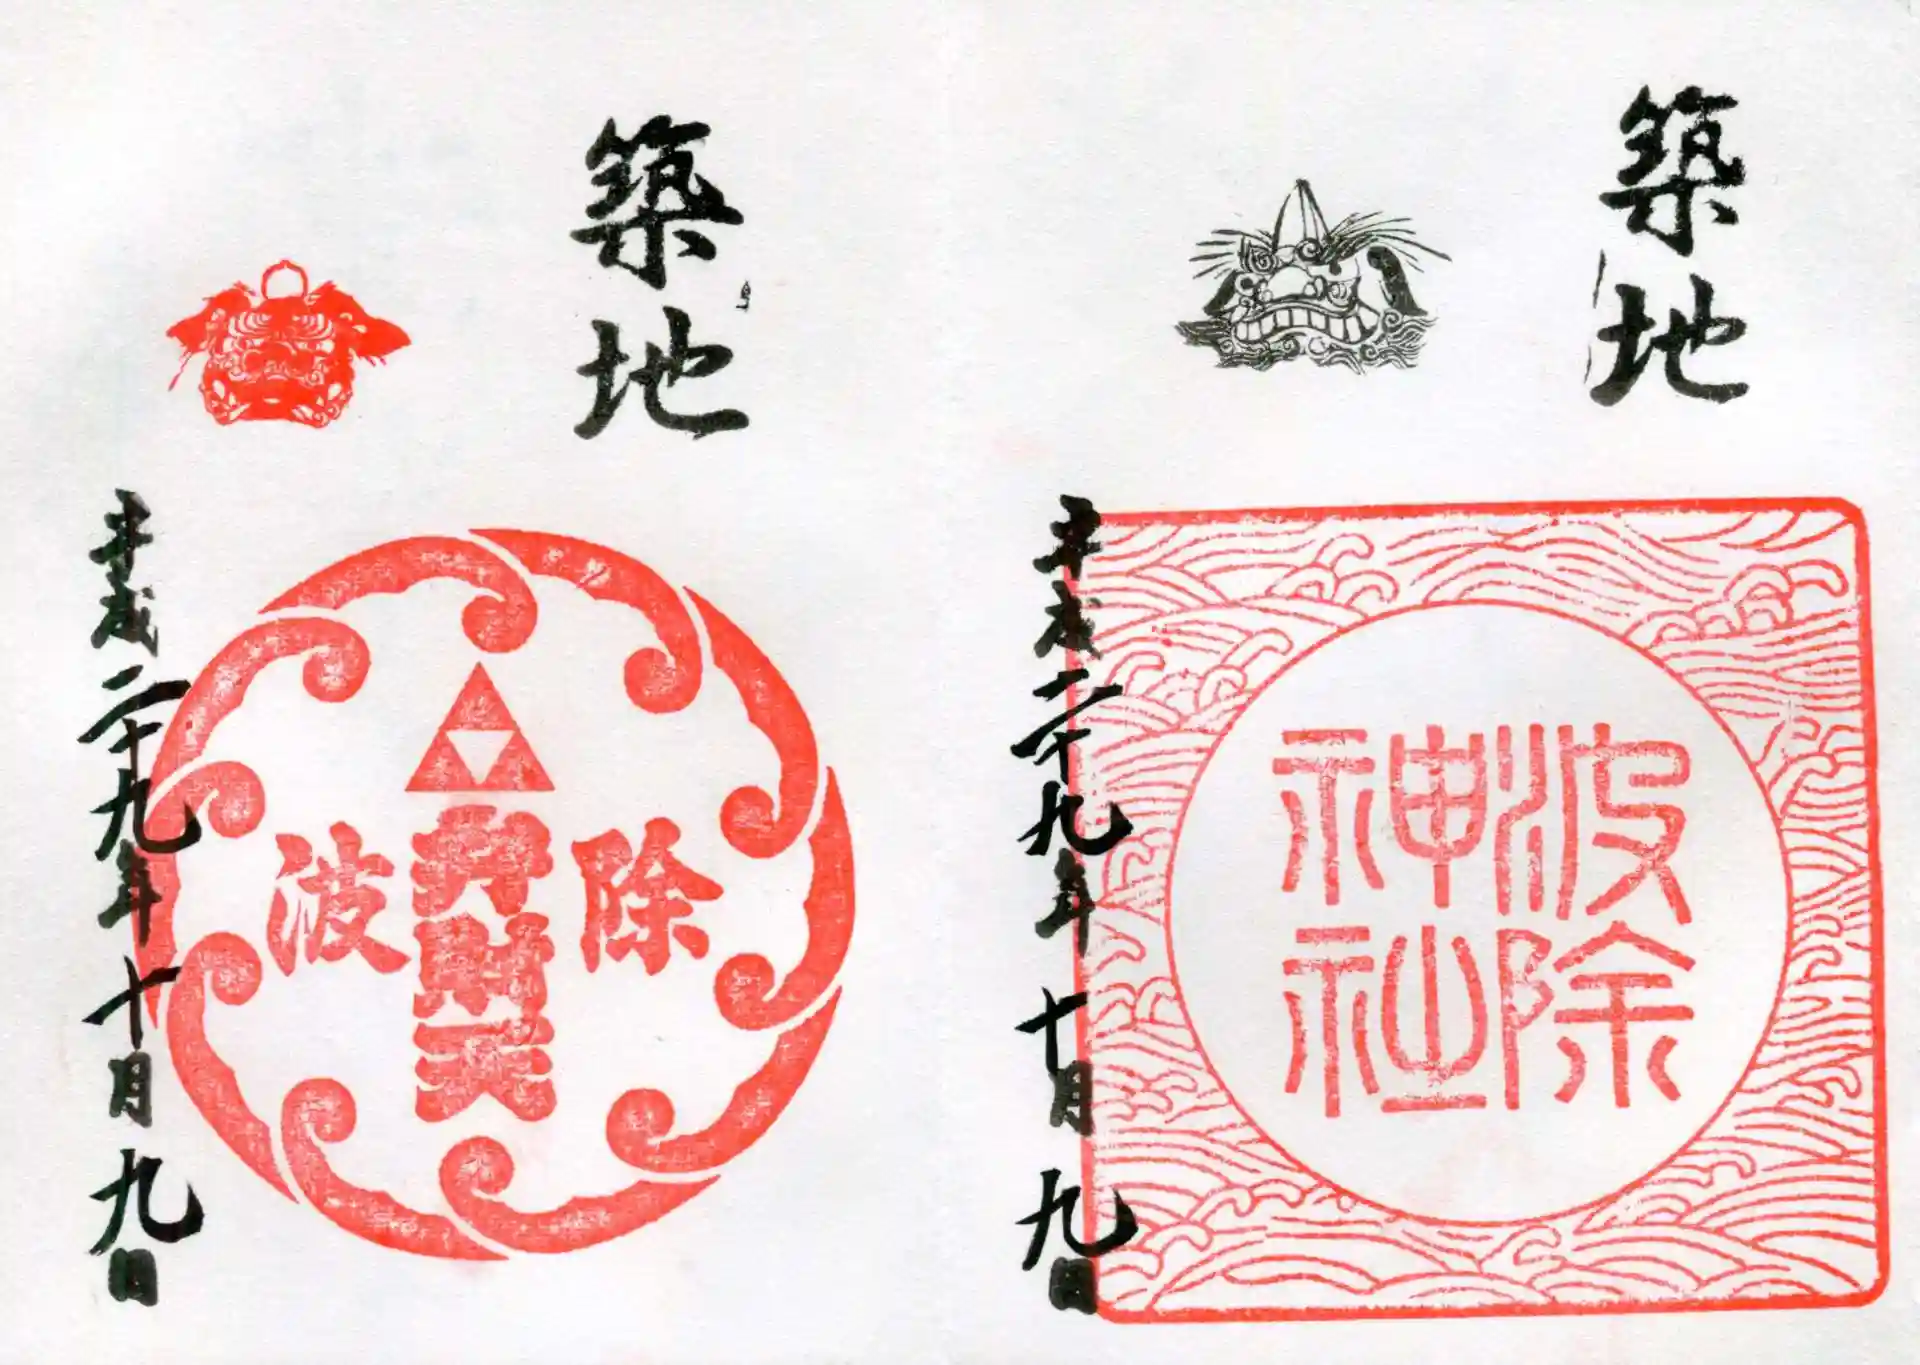 築地
波除
神社
平成二十九年十月九日
築地
波除
弁財天
平成二十九年十月九日